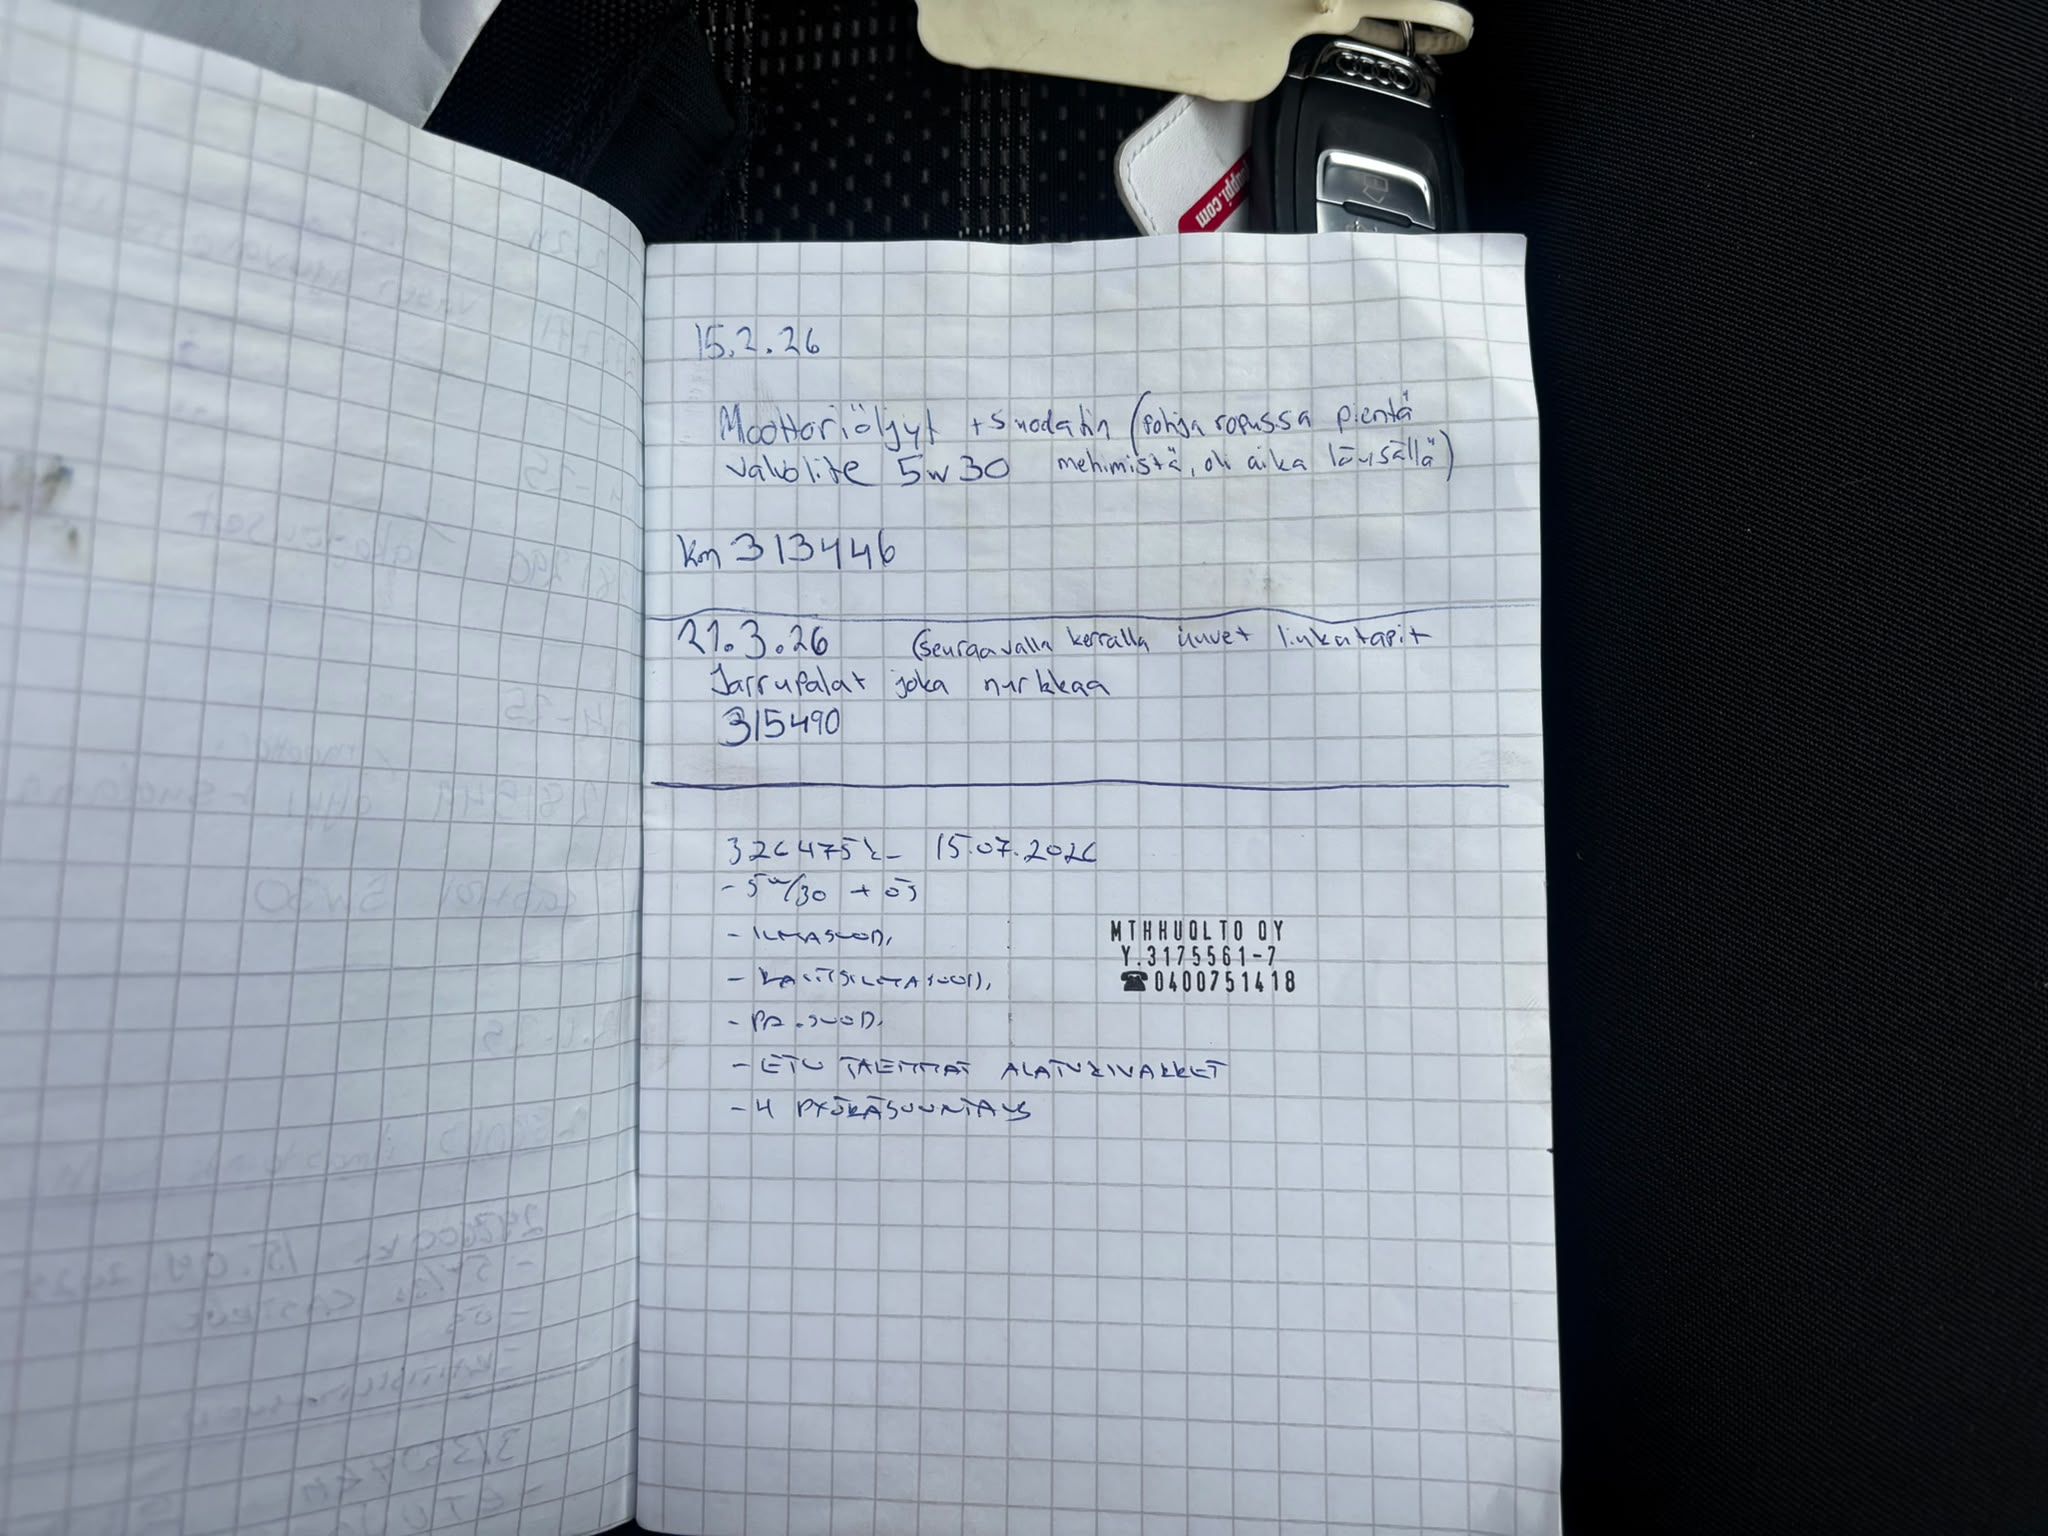 15.2.26
Moottoriöljyt + Suodatin (pohja ropussa pientä
valvolite 5w30 mehimistä, oli aika löysällä)
km 313446
21.3.26 (seuraavalla kerralla uuvet linkatapit
Jarrupalat joka nurkkaa
315490
326475k- 15.07.2026
- 5w/30 + ös
- ILMASUOD.
- RAITISILMASUOD.
- PA.SUOD.
- ETU TAEMMAT ALATUKIVARRET
- 4 PYÖRÄSUUNTAUS
MTHHUOLTO OY
Y.3175561-7
☎0400751418
appi.com